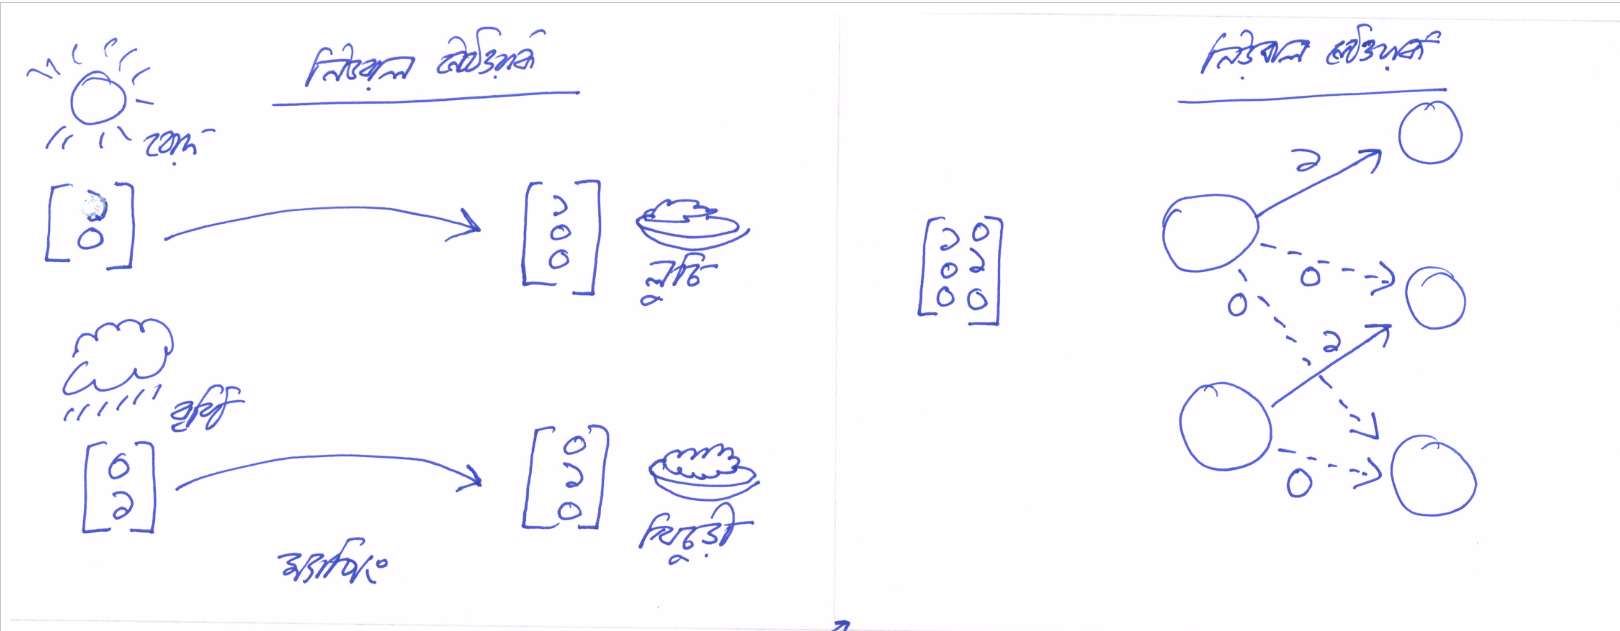 নিউরাল নেটওয়ার্ক
রোদ
[১ ০] [১ ০ ০]
লুচি
বৃষ্টি
[০ ১] [০ ১ ০]
খিচুড়ী
ম্যাপিং
নিউরাল নেটওয়ার্ক
১
[১ ০
০ ১
০ ০]
০
০
১
০